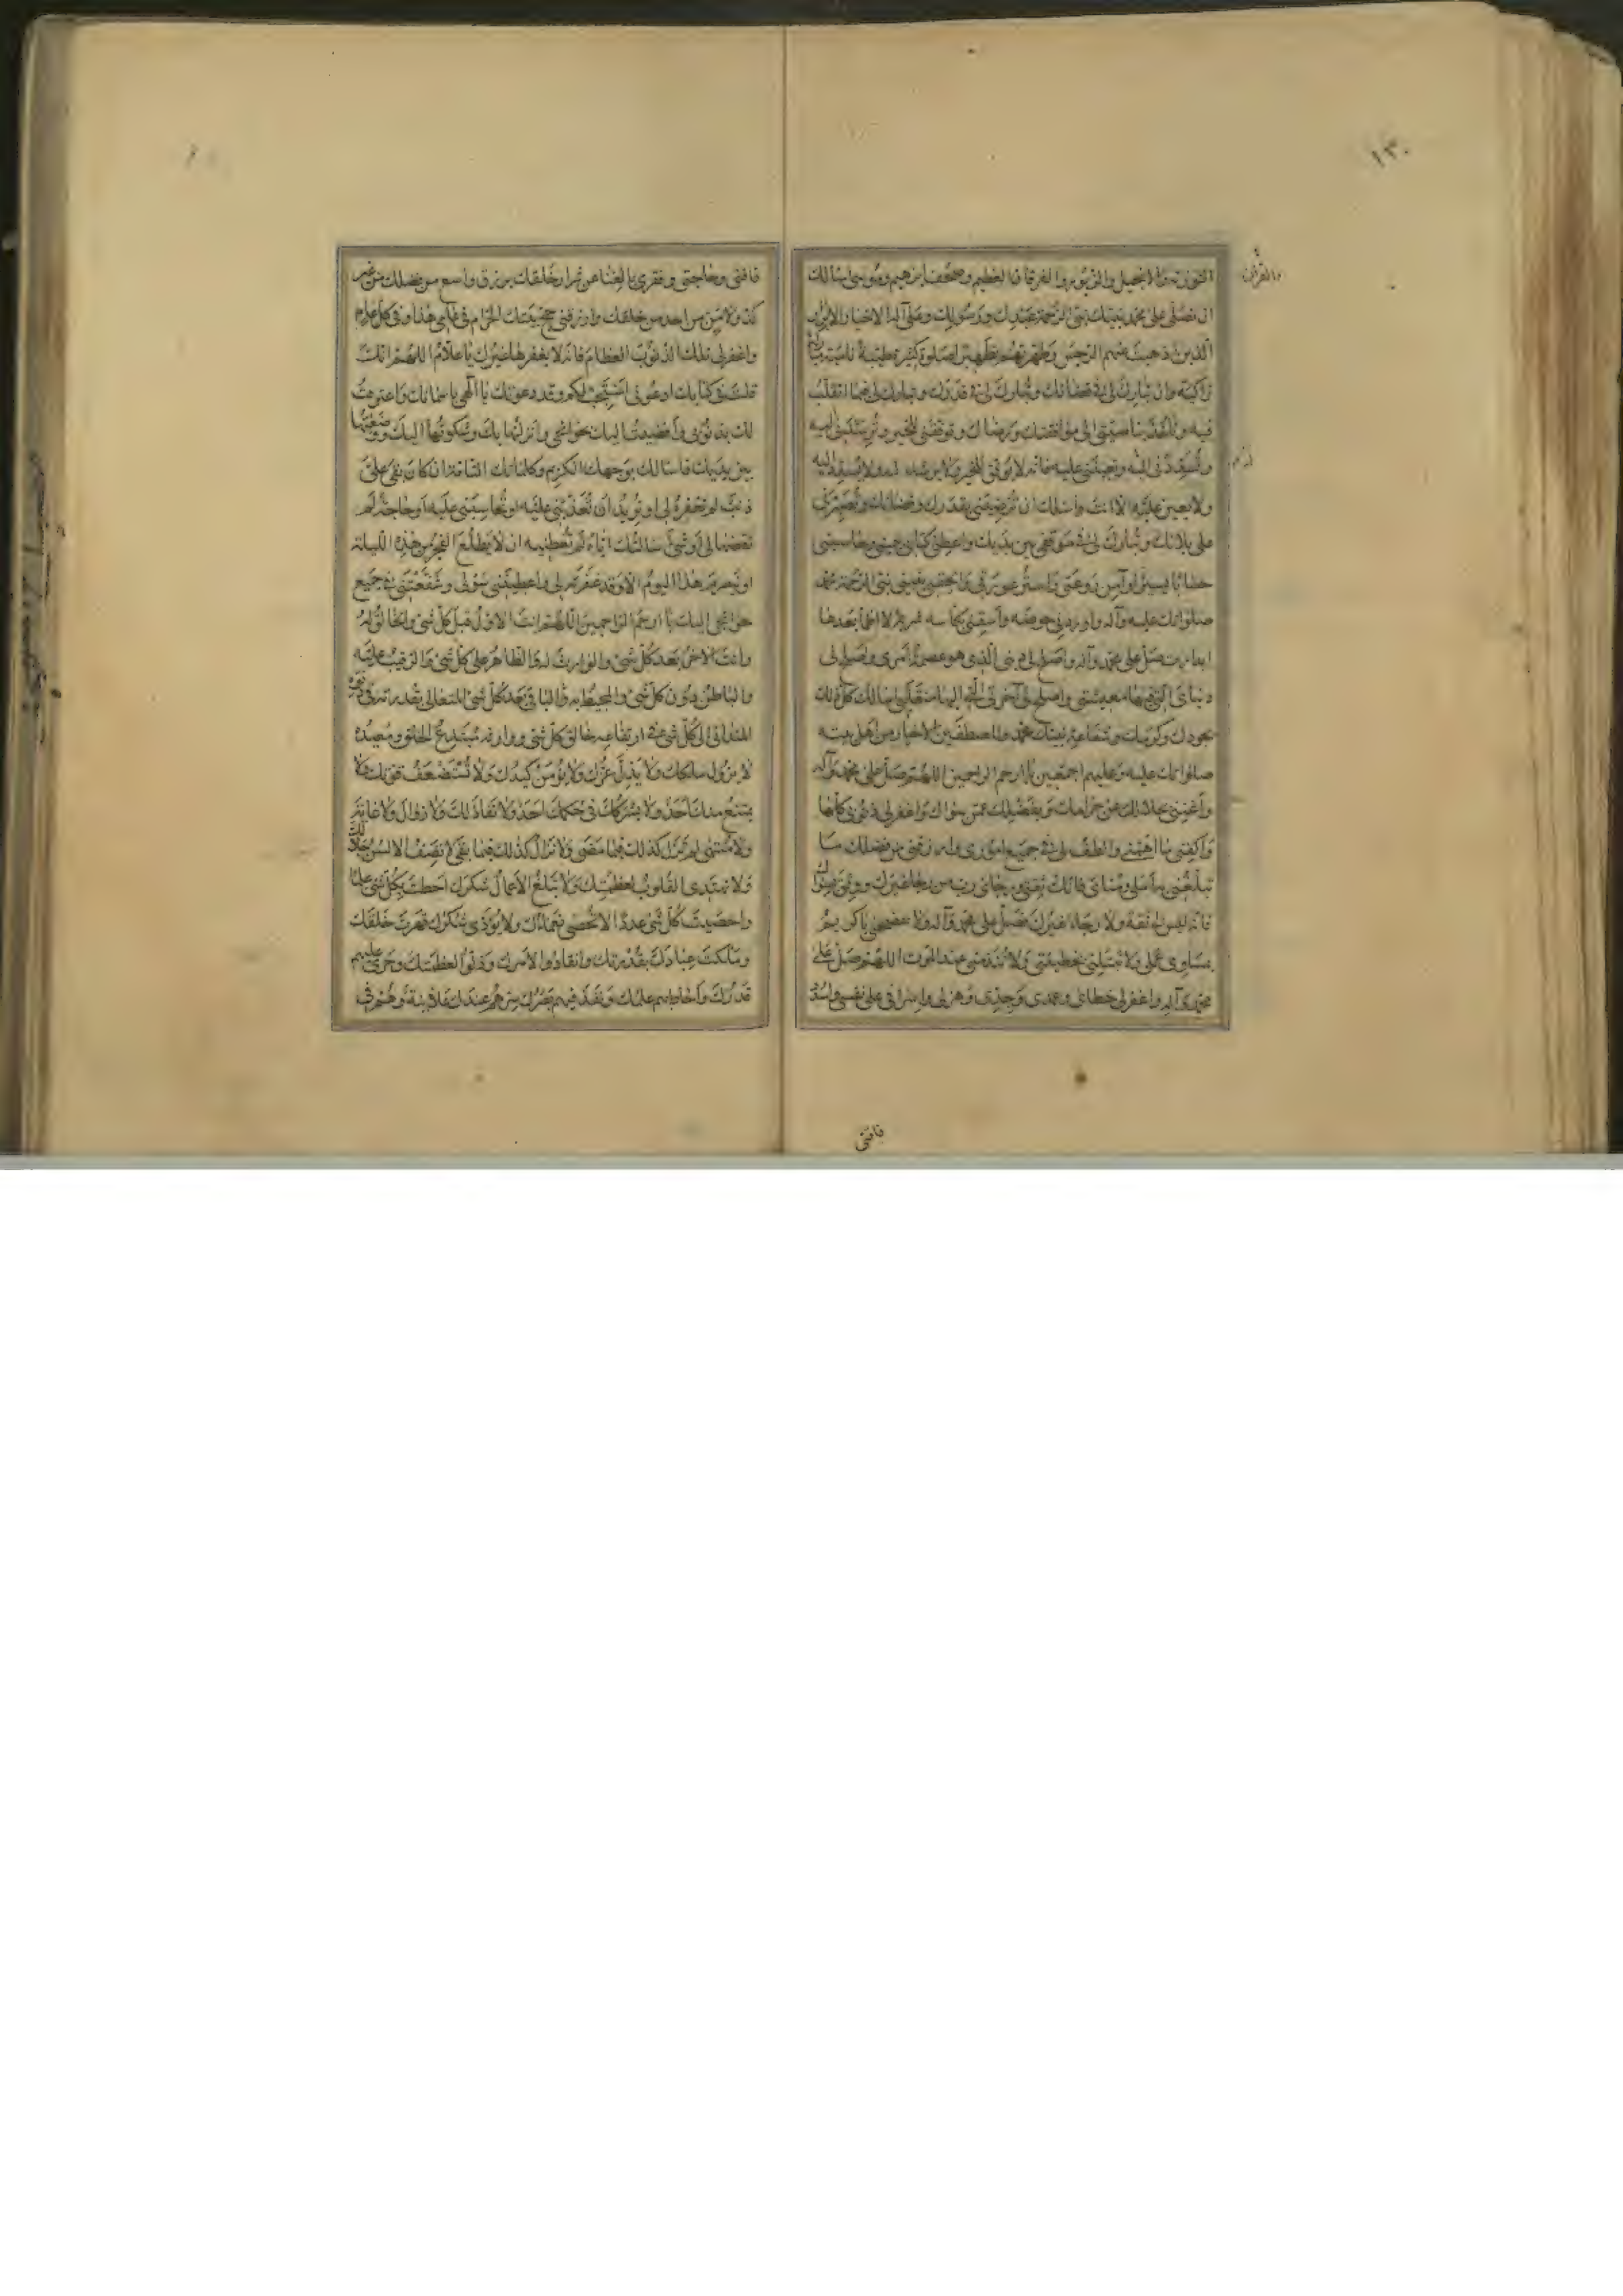 ١٣٠
والقرآن
التوریة والانجیل والزبور والفرقان العظیم وصحف ابرهیم وموسی اسالك
ان تصلی علی محمد نبیك نبی الرحمة عبدك ورسولك وعلی آله الاخیار الابرار
الذین اذهبت عنهم الرجس وطهرتهم تطهیرا صلوة كثیرة طیبة نامیة مباركة
زاكیة وان تبارك لی فی قضائك وتبارك لی فی قدرك وتبارك لی فیما اتقلب
فیه وتاخذ بناصیتی الی موافقتك ورضاك وتوفقنی للخیر وترشدنی الیه
وتسددنی الیه وتعیننی علیه فانه لا یوفق للخیر ولا یرشد له ولا یسدد الیه
ولا یعین علیه الا انت واسئلك ان ترضینی بقدرك وقضائك وتصبرنی
علی بلائك وتبارك لی فی موقفی بین یدیك واعطنی كتابی بیمینی وحاسبنی
حسابا یسیرا وآمن روعتی واستر عورتی والحقنی بنبیی نبی الرحمة محمد
صلواتك علیه وآله واوردنی حوضه واسقنی بكاسه شربة لا اظمأ بعدها
ابدا رب صل علی محمد وآله واصلح لی دینی الذی هو عصمة امری واصلح لی
دنیای التی فیها معیشتی واصلح لی آخرتی التی الیها منقلبی اسالك كل ذلك
بجودك وكرمك وشفاعة نبیك محمد والمصطفین الاخیار من اهل بیته
صلواتك علیه وعلیهم اجمعین یا ارحم الراحمین اللهم صل علی محمد وآله
واغننی بحلالك عن حرامك وبفضلك عمن سواك واغفر لی ذنوبی كلها
واكفنی ما اهمنی والطف لی فی جمیع اموری وارزقنی من فضلك ما
تبلغنی به املی ومنای فانك ثقتی ورجائی رب من رجا غیرك ووثق بسواك
فانه لیس لی ثقة ولا رجاء غیرك فصل علی محمد وآله ولا تفضحنی یا كریم
بمساوی عملی ولا تبتلنی بخطیئتی ولا تندمنی عند الموت اللهم صل علی
محمد وآله واغفر لی خطائی وعمدی وجدی وهزلی واسرافی علی نفسی واسدد
فاقتی
فاقتی وحاجتی وفقری بالغنا عن شرار خلقك برزق واسع من فضلك من غیر
كد ولا من من احد من خلقك وارزقنی حج بیتك الحرام فی عامی هذا وفی كل عام
واغفر لی تلك الذنوب العظام فانه لا یغفرها غیرك یا علام اللهم انك
قلت فی كتابك ادعونی استجب لكم وقد دعوتك یا الهی باسمائك واعترفت
لك بذنوبی وافضیت الیك بحوائجی وانزلتها بك وشكوتها الیك ووضعتها
بین یدیك فاسالك بوجهك الكریم وكلماتك التامة ان كان بقی علی
ذنب لم تغفره لی او ترید ان تعذبنی علیه او تحاسبنی علیه او حاجة لم
تقضها لی او شیء سالتك ایاه لم تعطنیه ان لا یطلع الفجر من هذه اللیلة
او ینصرم هذا الیوم الا وقد غفرته لی واعطیتنی سؤلی وشفعتنی فی جمیع
حوائجی الیك یا ارحم الراحمین اللهم انت الاول قبل كل شیء والخالق له
وانت الآخر بعد كل شیء والوارث له والظاهر علی كل شیء والرقیب علیه
والباطن دون كل شیء والمحیط به والباقی بعد كل شیء المتعالی بقدرته فی دنوه
المتدانی الی كل شیء فی ارتفاعه خالق كل شیء ووارثه مبتدع الخلق ومعیده
لا یزول ملكك ولا یذل عزك ولا یؤمن كیدك ولا تستضعف قوتك ولا
یمتنع منك احد ولا یشركك فی حكمك احد ولا نفاد لك ولا زوال ولا غایة
ولا منتهی لم تزل كذلك فیما مضی ولا تزال كذلك فیما بقی لا تصف الالسن جلالك
ولا تهتدی القلوب لعظمتك ولا تبلغ الاعمال شكرك احطت بكل شیء علما
واحصیت كل شیء عددا لا تحصی نعماؤك ولا یؤدی شكرك قهرت خلقك
وملكت عبادك بقدرتك وانقادوا لامرك وذلوا لعظمتك وجری علیهم
قدرك واحاط بهم علمك ونفذ فیهم بصرك سرهم عندك علانیة وهم فی